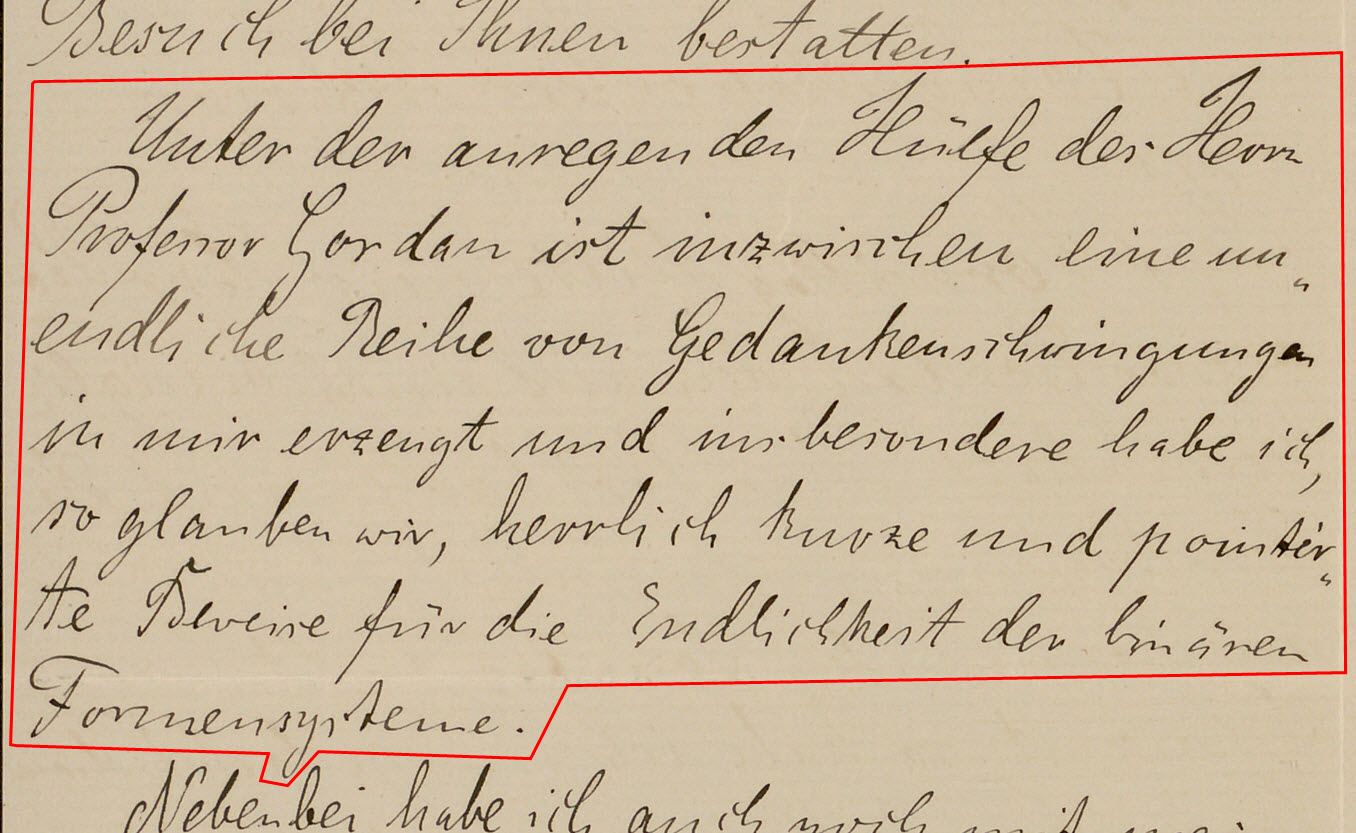 Besuch bei Ihnen bestatten.
Unter der anregenden Hülfe des Herrn
Professor Gordan ist inzwischen eine un„
endliche Reihe von Gedankenschwingungen
in mir erzeugt und insbesondere habe ich,
so glauben wir, herrlich kurze und pointir„
te Beweise für die Endlichkeit der binären
Formensysteme.
Nebenbei habe ich auch noch mit